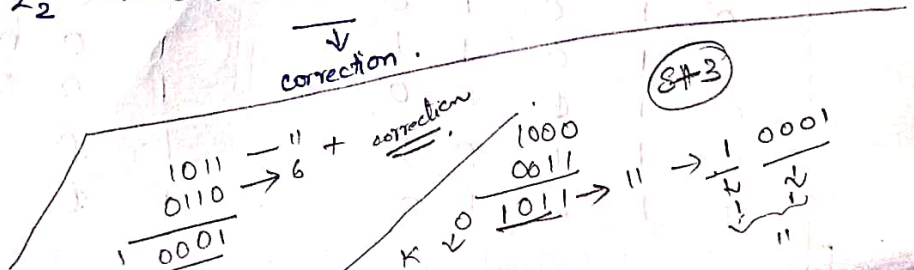 2
correction.
1011 — 11 + correction.
0110 → 6
1 0001
8+3
1000
0011
K 0 1011 → 11 → 1 0001
1 1
11